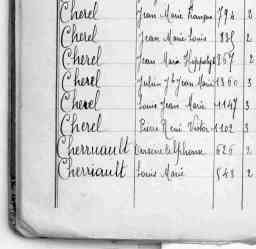 Cherel Jean Marie François 794 2
Cherel Jean Marie Louis 2
Cherel Jean Marie Hippolyte 867 2
Cherel Julien Jh Jean Marie 1360 3
Cherel Louis Jean Marie 1147 3
Cherel Pierre René Victor 1102 3
Cherruault Alphonse 626 2
Cherruault Louis Marie 543 2